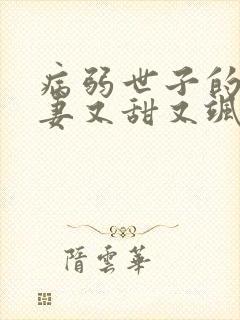 病弱世子的
妻又甜又颯
隋雲華